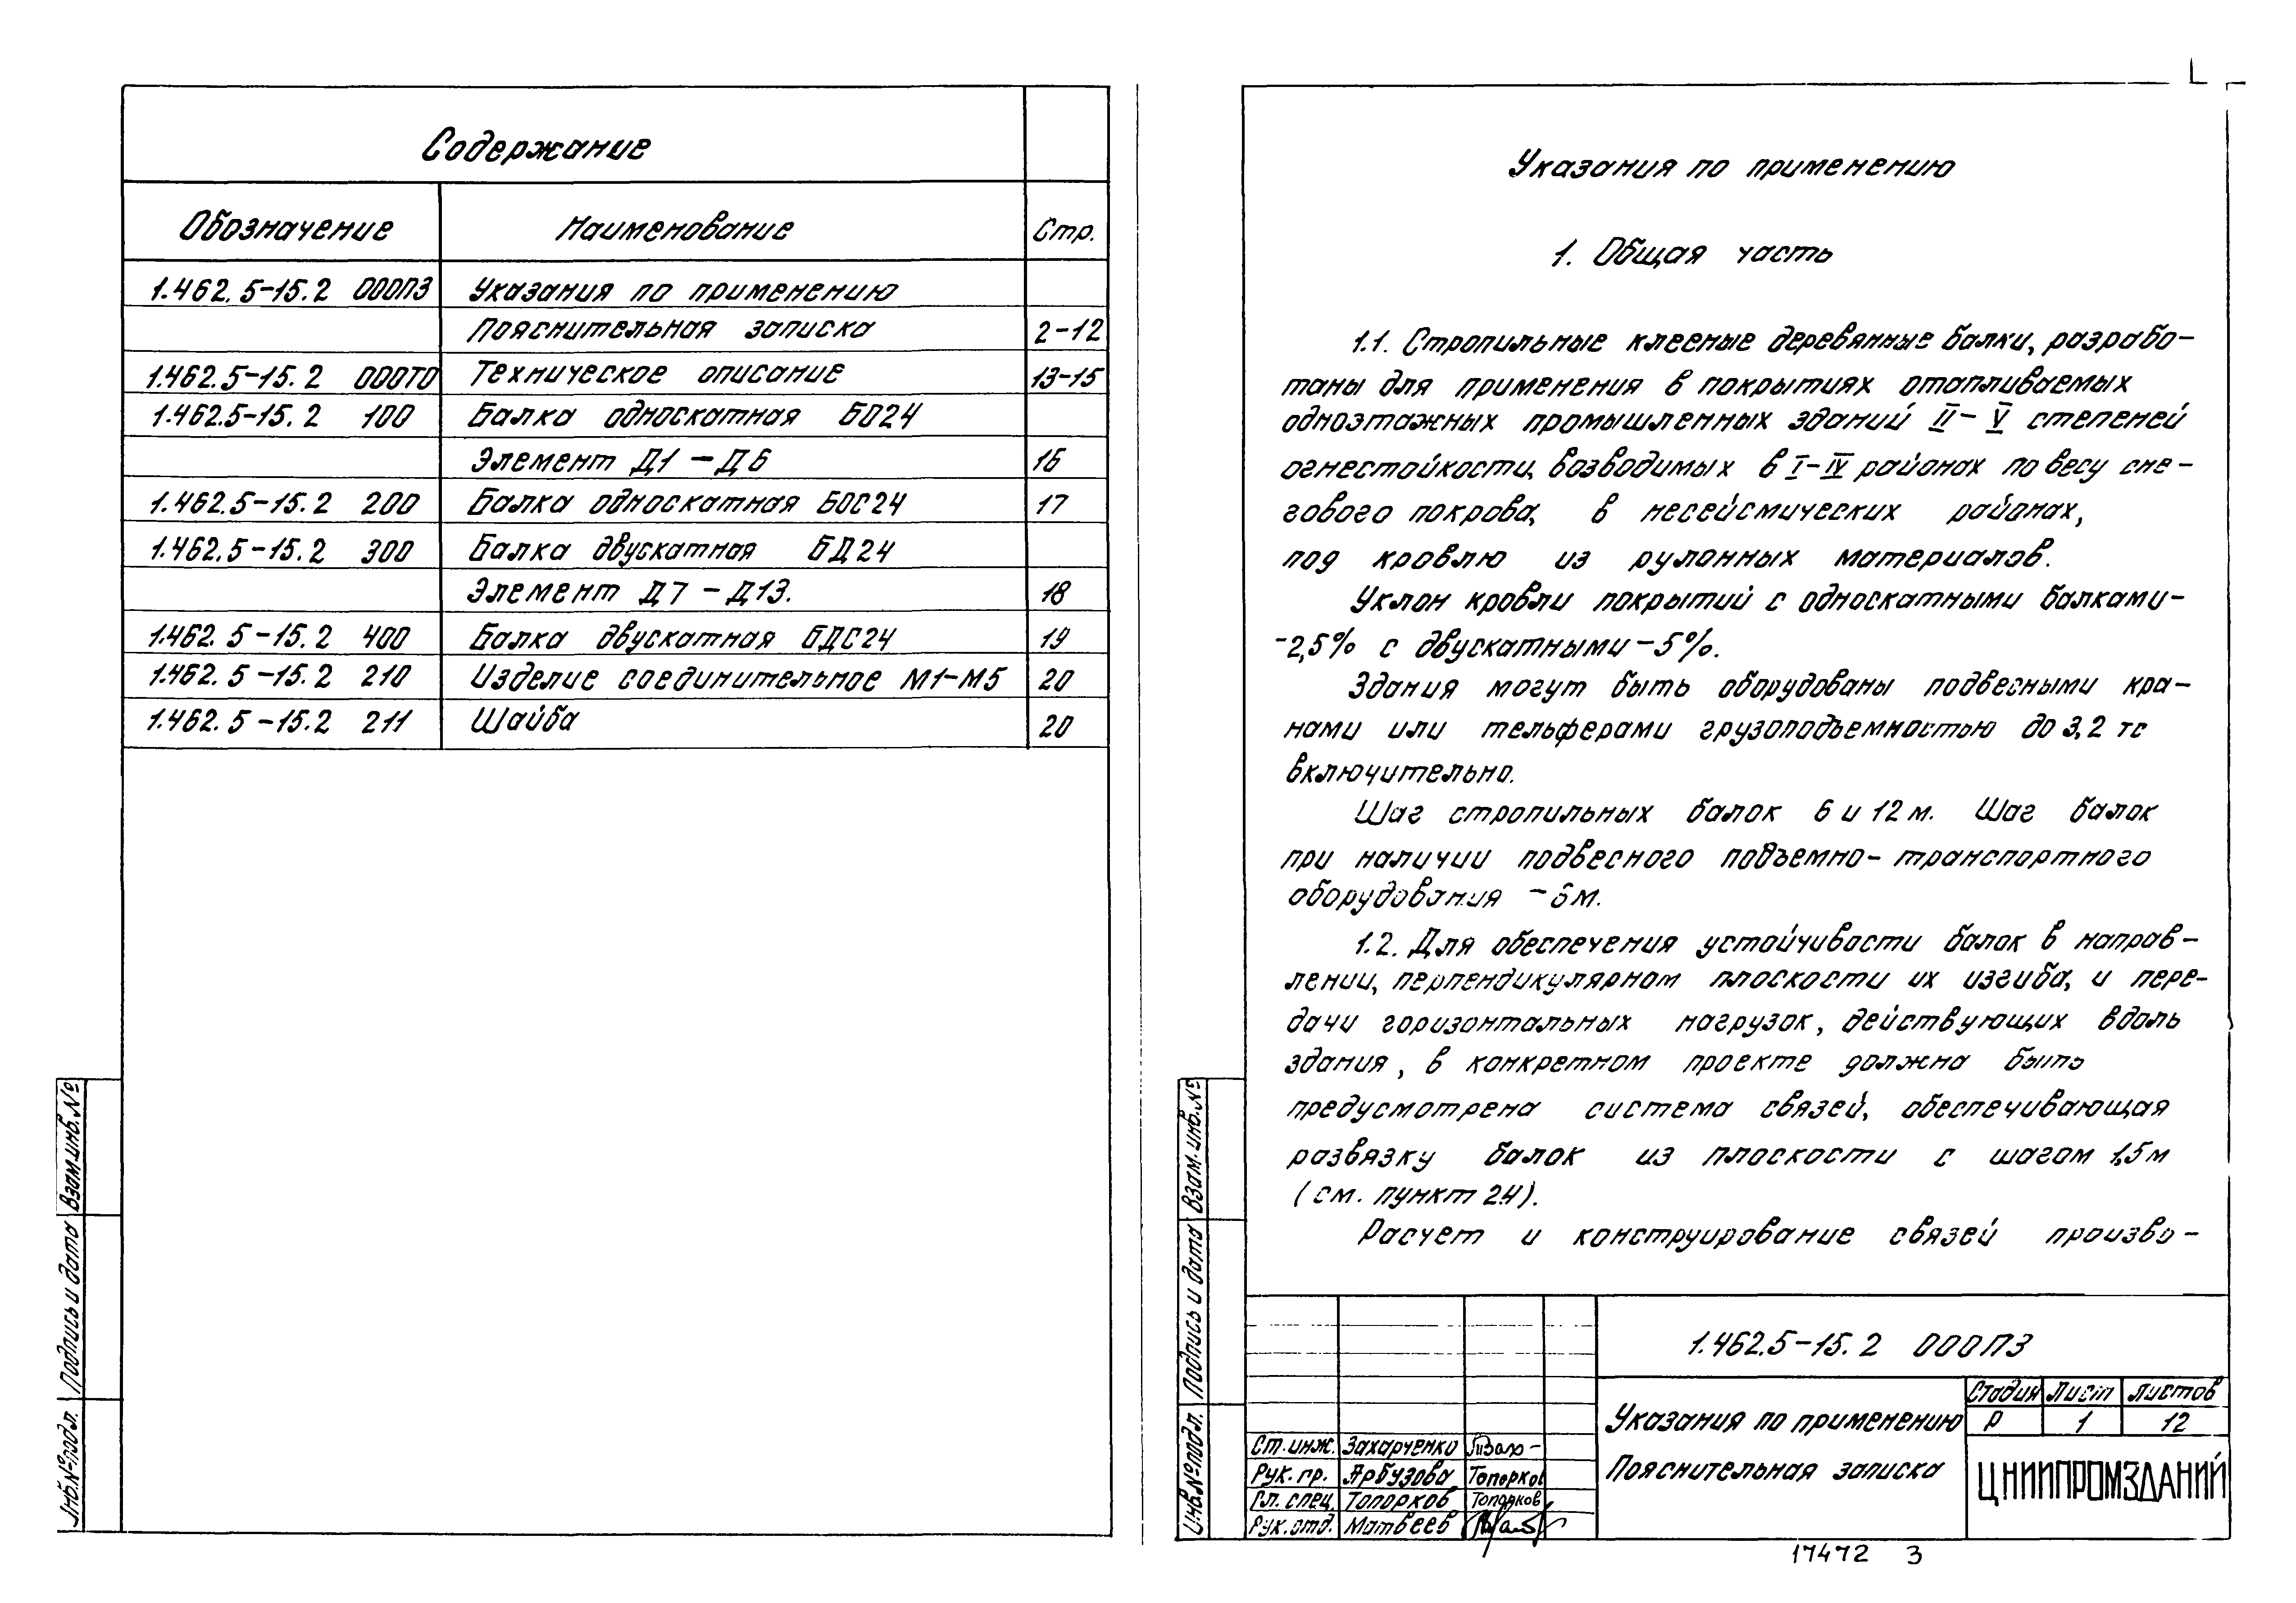 Содержание
Обозначение Наименование Стр.
1.462.5-15.2 000ПЗ Указания по применению
Пояснительная записка 2-12
1.462.5-15.2 000ТО Техническое описание 13-15
1.462.5-15.2 100 Балка односкатная БО24
Элемент Д1-Д6 16
1.462.5-15.2 200 Балка односкатная БОС24 17
1.462.5-15.2 300 Балка двускатная БД24
Элемент Д7-Д13. 18
1.462.5-15.2 400 Балка двускатная БДС24 19
1.462.5-15.2 210 Изделие соединительное М1-М5 20
1.462.5-15.2 211 Шайба 20
Инв.№подл. Подпись и дата Взам.инв.№
Указания по применению
1. Общая часть
1.1. Стропильные клееные деревянные балки, разрабо-
таны для применения в покрытиях отапливаемых
одноэтажных промышленных зданий II-V степеней
огнестойкости, возводимых в I-IV районах по весу сне-
гового покрова, в несейсмических районах,
под кровлю из рулонных материалов.
Уклон кровли покрытий с односкатными балками-
-2,5% с двускатными-5%.
Здания могут быть оборудованы подвесными кра-
нами или тельферами грузоподъемностью до 3,2 тс
включительно.
Шаг стропильных балок 6 и 12 м. Шаг балок
при наличии подвесного подъемно-транспортного
оборудования -6м.
1.2. Для обеспечения устойчивости балок в направ-
лении, перпендикулярном плоскости их изгиба, и пере-
дачи горизонтальных нагрузок, действующих вдоль
здания, в конкретном проекте должна быть
предусмотрена система связей, обеспечивающая
развязку балок из плоскости с шагом 1,5м
(см. пункт 2.4).
Расчет и конструирование связей произво-
Инв.№подл. Подпись и дата Взам.инв.№
1.462.5-15.2 000ПЗ
Указания по применению
Пояснительная записка
Стадия Лист Листов
Р 1 12
ЦНИИПРОМЗДАНИЙ
Ст.инж. Захарченко
Рук.гр. Арбузова Топорков
Гл. спец. Топорков Топорков
Рук.отд. Матвеев
17472 3